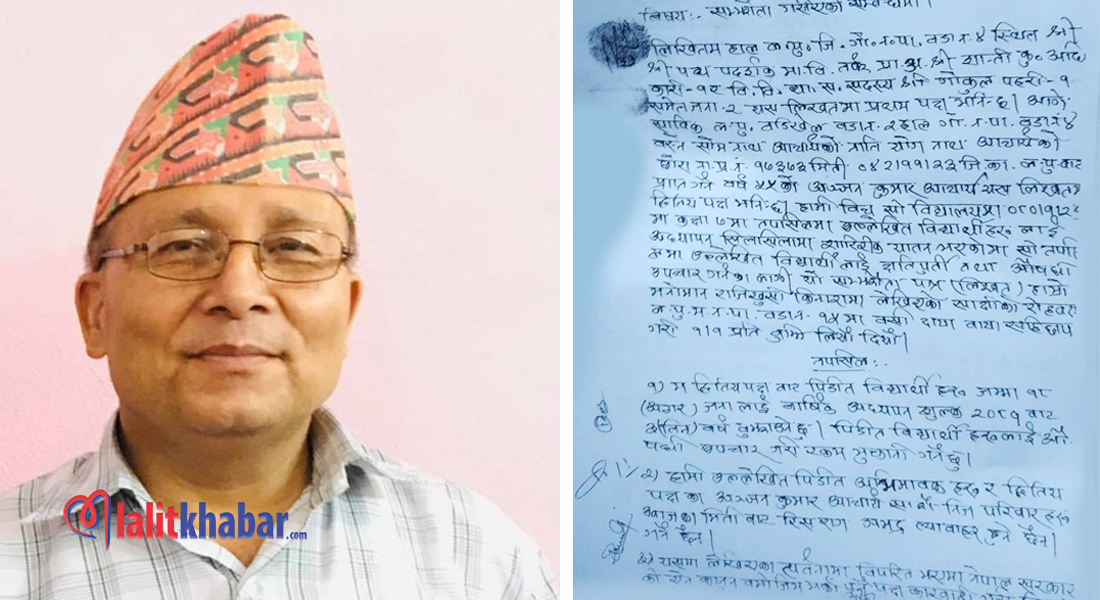 lalitkhabar.com
विषय:- सम्झौता गरिएको सम्बन्धमा।
लिखितम हाल ल.पु. जि. गो.न.पा. वडा नं ४ स्थित श्री
श्री पथ प्रदर्शक मा.वि. तर्फ प्र.अ. श्री शान्ती कु. अधि
कारी-१ र वि.वि. व्य. स. सदस्य श्री गोकुल पहरी-१
समेत जना-२ यस लिखतमा प्रथम पक्ष भनि-छ। आगे
साविक ल.पु. वडिखेल वडा नं-२ हाल गो.न.पा. वडा नं ४
बस्ने सोम नाथ आचार्यको नाति योग नाथ आचार्य को
छोरा ना.प्र.नं १७३७३ मिती ०४२।११।२३ जि.का. ल.पु. बाट
प्राप्त गर्ने वर्ष ५५ को अञ्जन कुमार आचार्य यस लिखतमा
द्वितिय पक्ष भनि-छ। हामी विच सो विद्यालयमा
मा कक्षा ७ मा तपसिलमा उल्लेखित विद्यार्थी हरु लाई
अध्यापन सिलसिलामा शारिरीक यातना भएकोमा सो
उल्लेखित विद्यार्थी लाई क्षतिपुर्ती तथा औषधी
उपचार गर्नका लागी यो सम्झौता पत्र (लिखत) हामी
मनोमान राजिखुसी किनारामा लेखिएका साक्षीको रोहवर
ल.पु.म.न.पा. वडा नं- १५ मा बसी दाया बाया सहिछाप
गरी १।१ प्रति बुझि लियौं दियौं।
तपसिल:-
१) म द्वितिय पक्ष बाट पिडीत विद्यार्थी हरु जम्मा १८
(अठार) जना लाई बार्षिक अध्यापन शुल्क २०८१ बाट
३(तिन) वर्ष बुझाउने छु। पिडीत विद्यार्थी हरुलाई
पछी उपचार गरी रकम भुक्तानी गर्नेछु।
२) हामी उल्लेखित पिडीत अभिभावक हरु र द्वितिय
पक्ष का अञ्जन कुमार आचार्य निज परिवार हरु
आजका मिती बाट रिस राग अभद्र व्यावाहर हुने छैन।
गर्ने छैन।
३) यसमा लेखिएका विपरित भएमा नेपाल सरकार
को ऐन कानुन बमोजिम